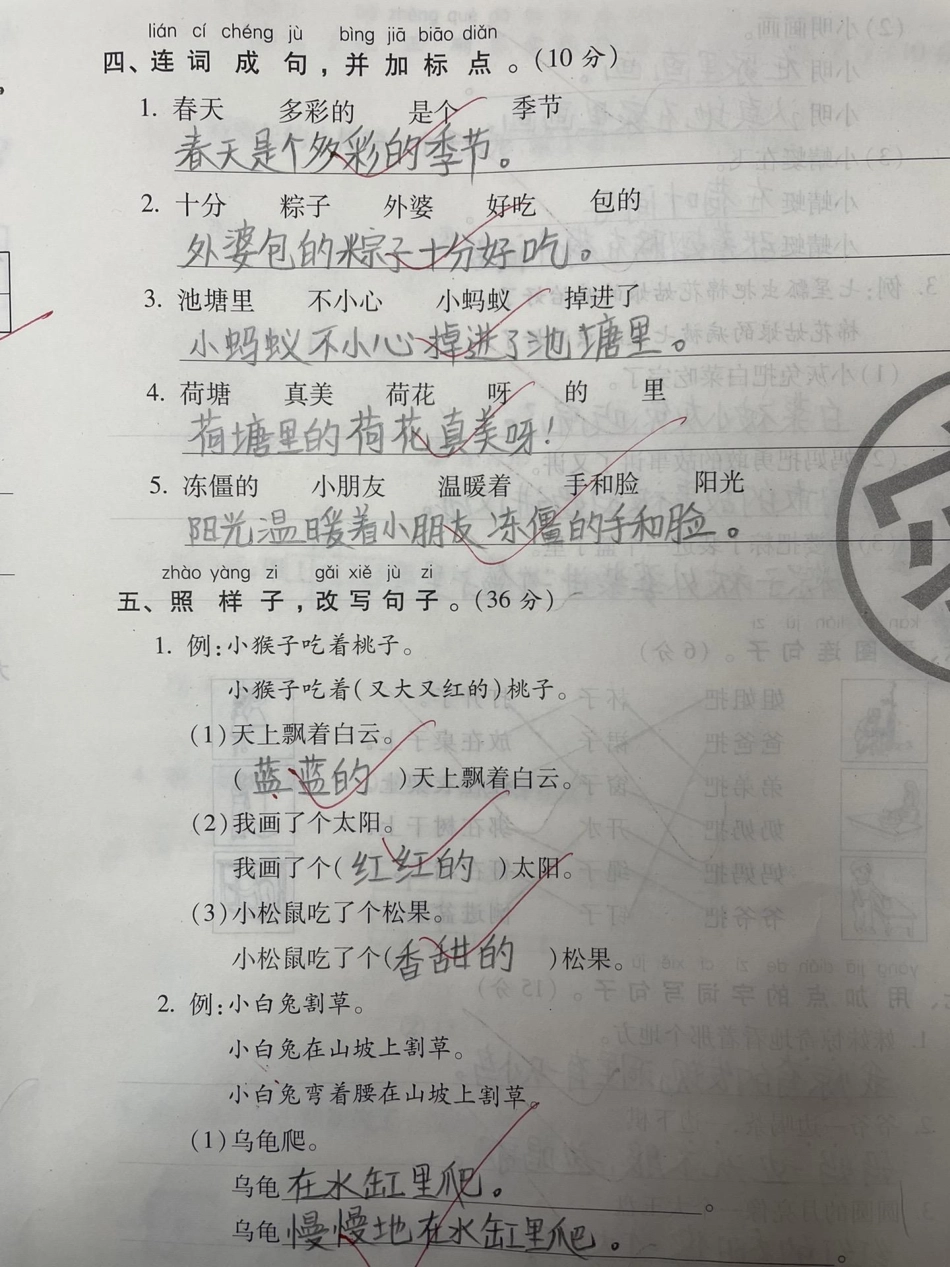 lián cí chéng jù bìng jiā biāo diǎn
四、连词成句，并加标点。(10分)
1. 春天 多彩的 是个 季节
春天是个多彩的季节。
2. 十分 粽子 外婆 好吃 包的
外婆包的粽子十分好吃。
3. 池塘里 不小心 小蚂蚁 掉进了
小蚂蚁不小心掉进了池塘里。
4. 荷塘 真美 荷花 呀 的 里
荷塘里的荷花真美呀！
5. 冻僵的 小朋友 温暖着 手和脸 阳光
阳光温暖着小朋友冻僵的手和脸。
zhào yàng zi gǎi xiě jù zi
五、照样子，改写句子。(36分)
1. 例：小猴子吃着桃子。
小猴子吃着(又大又红的)桃子。
(1)天上飘着白云。
(蓝蓝的)天上飘着白云。
(2)我画了个太阳。
我画了个(红红的)太阳。
(3)小松鼠吃了个松果。
小松鼠吃了个(香甜的)松果。
2. 例：小白兔割草。
小白兔在山坡上割草。
小白兔弯着腰在山坡上割草。
(1)乌龟爬。
乌龟在水缸里爬。。
乌龟慢慢地在水缸里爬。。